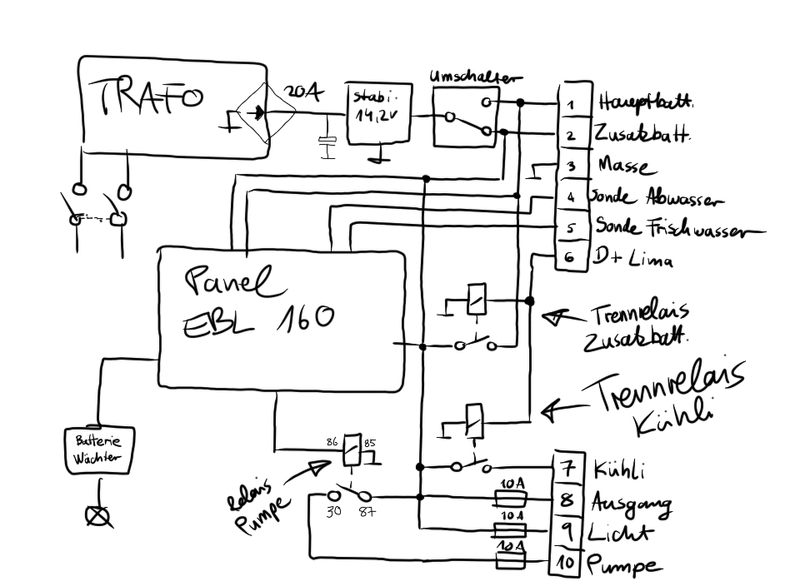 TRAFO
20A
Stabi.
14,2V
Umschalter
1 Hauptbatt.
2 Zusatzbatt.
3 Masse
4 Sonde Abwasser
5 Sonde Frischwasser
6 D+ Lima
Panel
EBL 160
Trennrelais
Zusatzbatt.
Trennrelais
Kühli
Batterie
Wächter
86 85
Relais
Pumpe
30 87
7 Kühli
10A
8 Ausgang
10A
9 Licht
10A
10 Pumpe